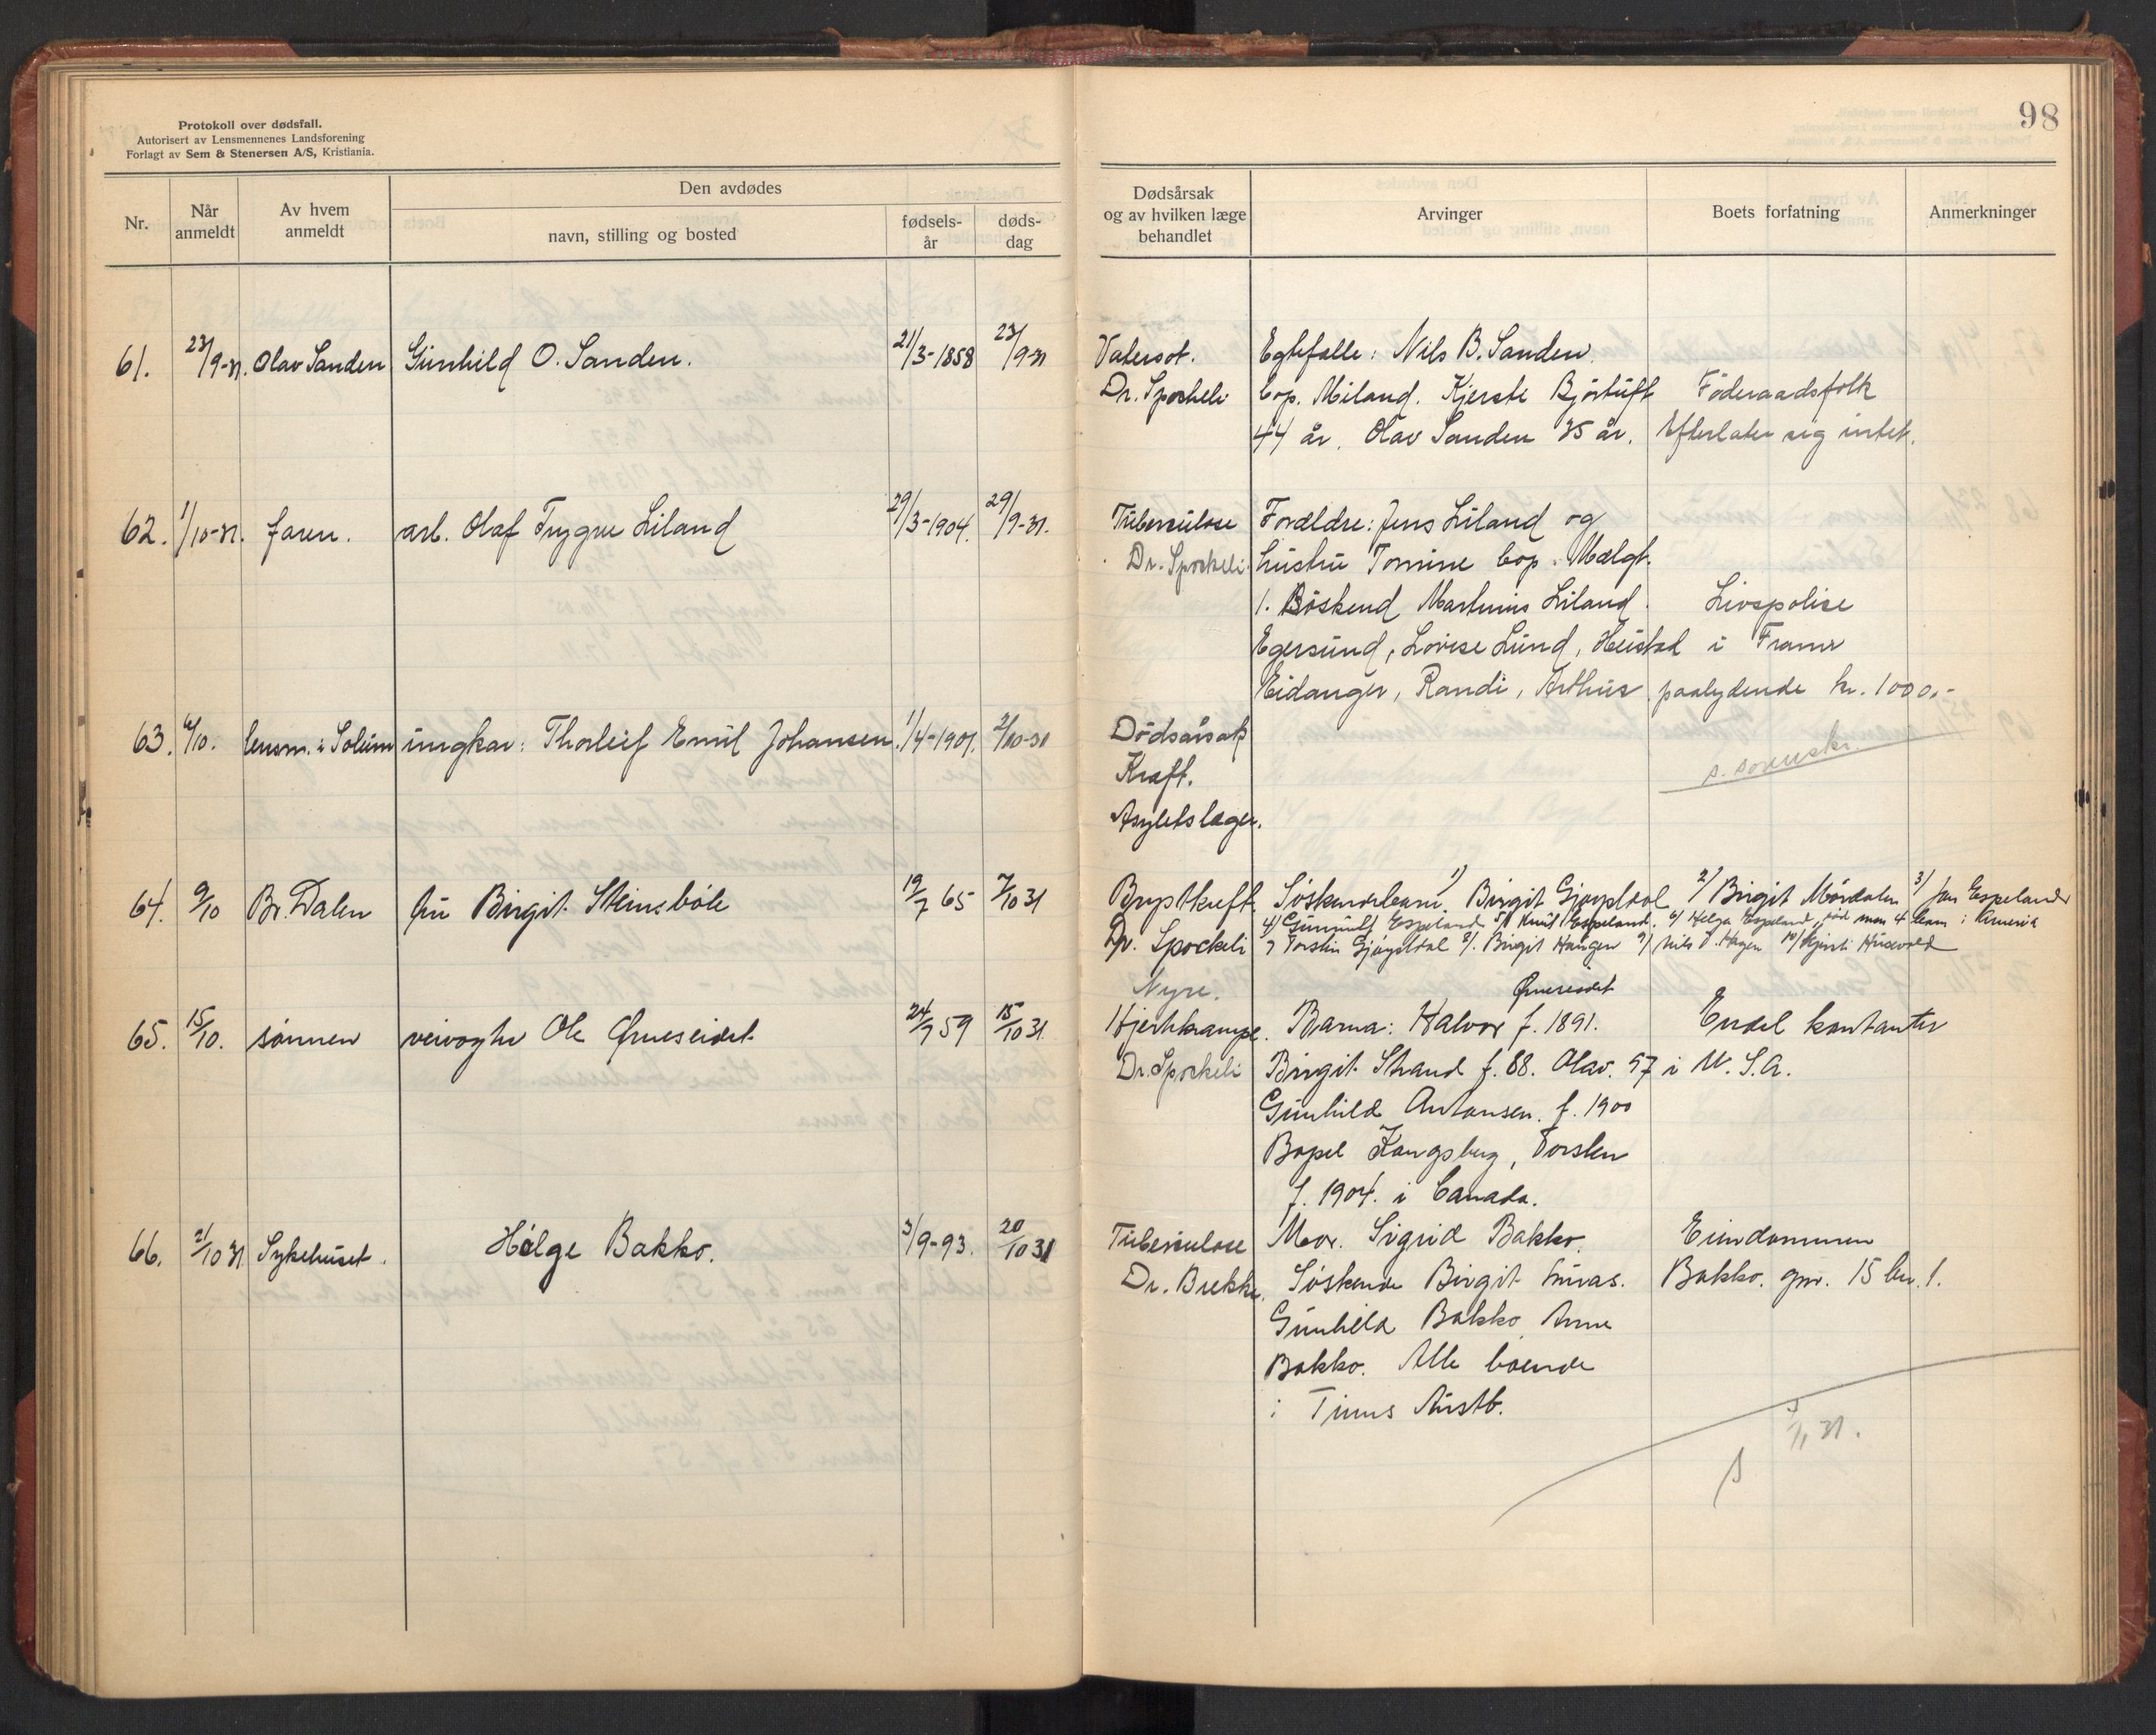 Protokoll over dødsfall.
Autorisert av Lensmennenes Landsforening
Forlagt av Sem & Stenersen A/S, Kristiania.
98
Nr.
Når anmeldt
Av hvem anmeldt
Den avdødes
navn, stilling og bosted
fødsels-år
døds-dag
Dødsårsak og av hvilken læge behandlet
Arvinger
Boets forfatning
Anmerkninger
61. 23/9-31. Olav Sanden Gunhild O. Sanden. 21/3-1858 23/9-31 Vatersot. Egtefelle: Nils B. Sanden.
Dr. Spockeli bop. Miland. Kjerste Bjørtuft Føderaadsfolk
44 år. Olav Sanden 35 år. Efterlater sig intet.
62. 1/10-31. faren. arb. Olaf Trygve Liland 29/3-1904. 29/9-31. Tuberculose Foreldre: Jens Liland og
Dr. Spockeli. hustru Tomine bop. Mælgt.
1. Søskend Martinius Liland. Livspolise
Egersund, Lovise Lund, Heistad i Fram
Eidanger, Randi, Arthur paalydende kr. 1000,-
63. 6/10. lensm. i Solum ungkar: Thorleif Emil Johansen. 1/4-1901. 2/10-31 Dødsårsak
Kreft.
Asylets læger.
64. 9/10 Br. Dalen fru Birgit Steinsbøle 19/7 65 7/10 31 Brystkreft. Søskendebarn: 1) Birgit Gjøystdal 2/ Birgit Mårdalen 3/ Jon Espeland
4/ Gunnulf Espeland 5/ Knut Espeland. 6/ Helga Espeland, død men 4 barn i Amerika
Dr. Spockeli 7 Torstein Gjøystdal 8/. Birgit Haugen 9/ Nils O. Hagen 10/ Kjersti Husevold
Nyre.
Ørneseidet
65. 15/10. sønnen veivogter Ole Ørneseidet 24/7 59 15/10 31. Hjertekrampe. Barna: Halvor f. 1891. Endel kontanter
Dr. Spockeli Birgit Strand f. 88. Olav. 97 i U.S.A.
Gunhild Antonsen. f. 1900
Bopel Kongsberg, Torsten
f. 1904. i Canada.
66. 21/10 31 Sykehuset. Helge Bakko. 3/9-93. 20/10 31 Tuberculose Mor. Sigrid Bakko. Eiendommen
Dr. Brekke. Søskende Birgit Luras. Bakko. gnr. 15 bn. 1.
Gunhild Bakko Anne
Bakko. Alle boende
i Tinns Austb.